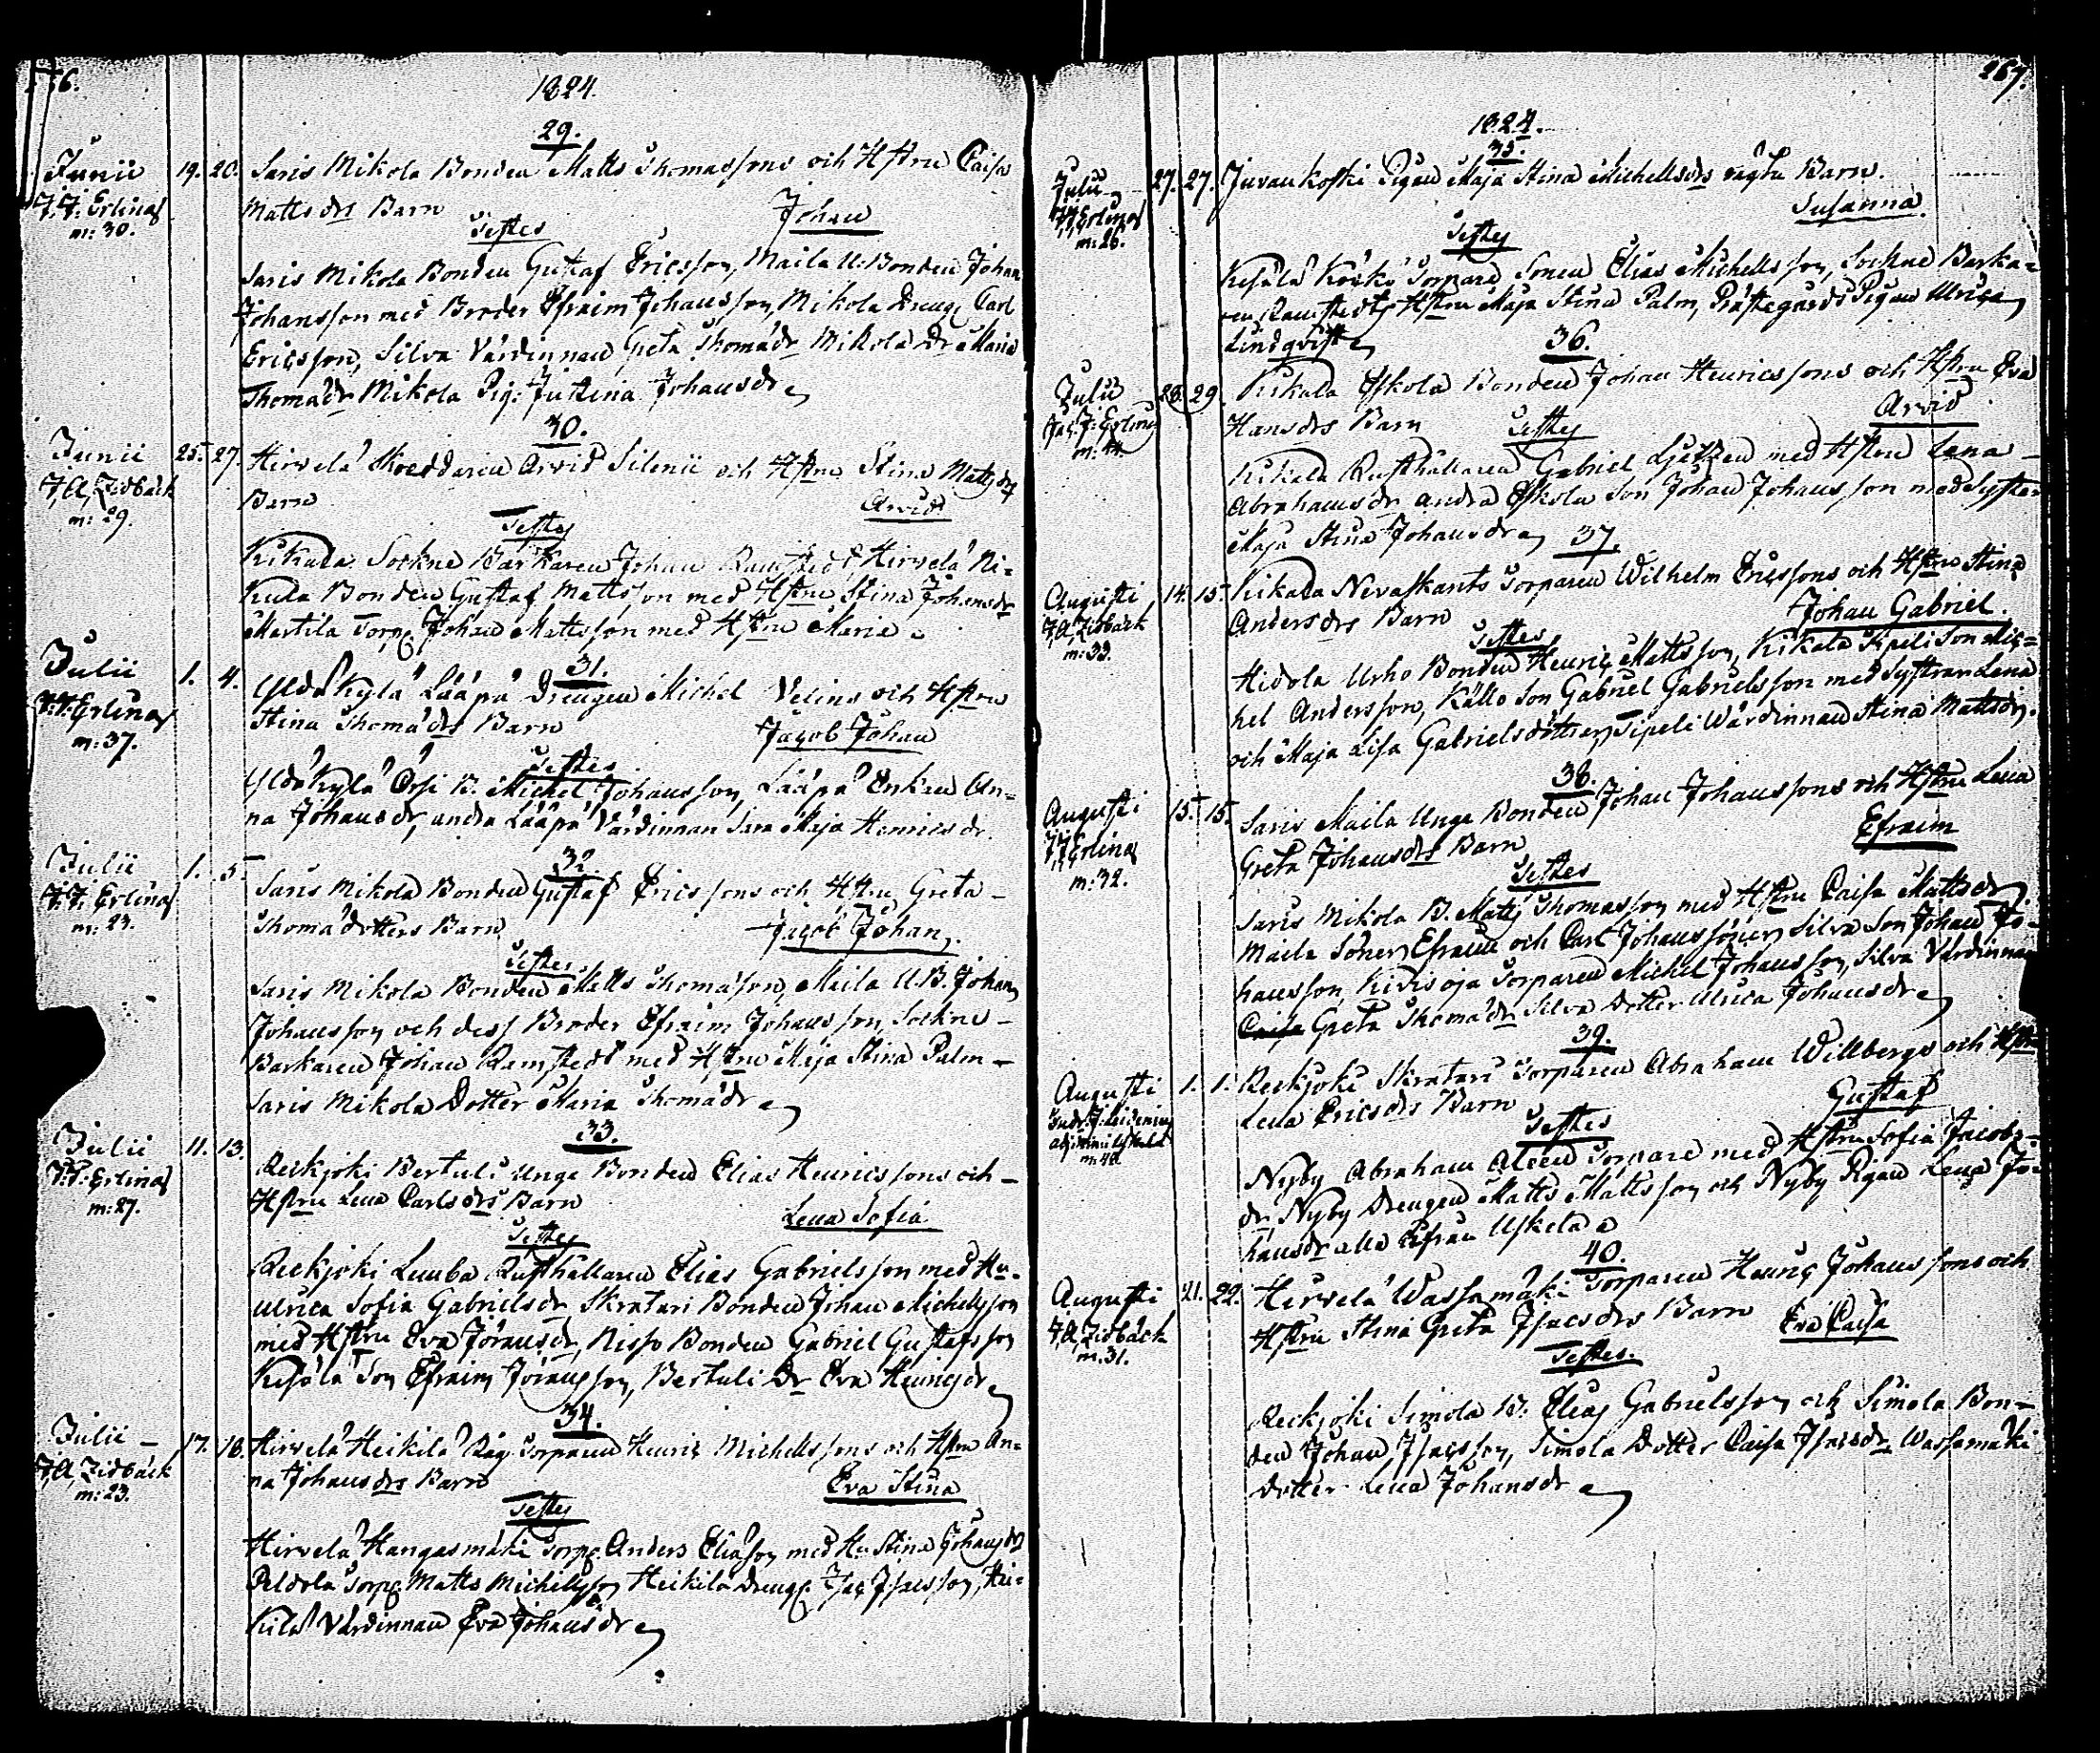 1824.
29.
Junii 19. 20. Saris Mikola Bonden Matts Thomassons och Hstru Caisa
J. J. Erlina
m: 30.
Matts drs Barn Johan
Testes
Saris Mikola Bonden Gustaf Ericsson, Maila U. Bonden Johan
Johansson med Broder Efraim Johansson, Mikola Dreng Carl
Ericsson, Silva Värdinnan Greta Thomädr Mikola Dr Maria
Thomädr Mikola Pig. Justina Johansdr
30.
Junii 25. 27. Hirvelä Skräddaren Arvid Silenii och Hstru Stina Matts drs
J A Zidbäck
m: 29.
Barn Arvid
Testes
Kikala Sockne Barkaren Johan Ramstedt, Hirvelä Ni-
kula Bonden Gustaf Mattsson med Hstru Stina Johansdr
Martila Torp. Johan Mattsson med Hstru Maria
31.
Julii 1. 4. Yldäkylä Lääpä Drengen Michel Velins och Hstru
J. J. Erlina
m: 37.
Stina Thomä drs Barn Jacob Johan
Testes
Yldäkylä Orsi B. Michel Johansson, Lääpä Enkan An-
na Johansdr, andra Lääpä Värdinnan Sara Maja Henricsdr.
32
Julii 1. 5. Saris Mikola Bonden Gustaf Ericssons och Hstru Greta
J. J. Erlina
m: 23.
Thomä dotters Barn Jacob Johan.
Testes
Saris Mikola Bonden Matts Thomäson, Maila U. B. Johan
Johansson och dess Broder Efraim Johansson, Sockne
Barkaren Johan Ramstedt med Hstru Maja Stina Palm
Saris Mikola Dotter Maria Thomädr
33.
Julii 11. 13. Reckjoki Bertuli Unga Bonden Elias Henricssons och
J. J. Erlina
m: 27.
Hstru Lena Carls drs Barn Lena Sofia
Testes
Reckjoki Luuba Rusthållaren Elias Gabrielsson med Hu.
Ulrica Sofia Gabrielsdr Skratari Bonden Johan Michelsson
med Hstru Eva Jöransdr, Nispo Bonden Gabriel Gustafsson
Kesälä Son Efraim Jöransson, Bertuli Dr Eva Henricsdr
34.
Julii 17. 18. Hirvelä Heikilä Råg Torparen Henric Michelssons och Hstru An-
J A Zidbäck
m: 23.
na Johans drs Barn Eva Stina
Testes
Hirvelä Hangasmäki Torp. Anders Eliäson med Hu Stina Johansdr
Peldola Torp. Matts Michelsson Heikilä Dreng. Isac Isacsson, Hei-
kilä Värdinnan Eva Johansdr
267.
1824.
35.
Julii 27. 27. Juvankoski Pigan Maja Stina Michelsdrs oägta Barn.
J J Erlina
m: 26.
Susanna
Testes
Kesälä Torpare Sonen Elias Michelsson, Sockne Barka-
ren Ramstedts Hstru Maja Stina Palm, Prästegårds Pigan Ulrica
Lindqvist
36.
Julii 28. 29. Kikala Eskola Bonden Johan Henricssons och Hstru Eva
Hansdrs Barn Arvid
Testes
Kikala Rusthållaren Gabriel med Hstru Lena
Abrahamsdr andra Eskola Son Johan Johansson med Syster
Maja Stina Johansdr
37.
Augusti 14. 15. Kikala Nevaskants Torparen Wilhelm Ericssons och Hstru Stina
J A Zidbäck
m: 33.
Andersdrs Barn Johan Gabriel.
Testes
Hidola Urho Bonden Henric Mattsson, Kikala Sipeli Son Mic-
hel Andersson, Källo Son Gabriel Gabrielsson med Systrar Lena
och Maja Lisa Gabrielsdöttrar, Sipeli Wärdinnan Stina Mattsdr.
38.
Augusti 15. 15. Saris Maila Unga Bonden Johan Johanssons och Hstru Lena
J J Erlina
m: 32.
Greta Johansdrs Barn Efraim
Testes
Saris Mikola B. Matts Thomasson med Hstru Caisa Mattsdr
Maila Söner Efraim och Carl Johanssöner, Silva Son Johan Jo-
hansson, Kivisoja Torparen Michel Johansson, Silva Värdinnan
Caisa Greta Thomädr Silva Dotter Ulrica Johansdr
39.
Augusti 1. 1. Reckjoki Skratari Torparen Abraham Willbergs och Hstru
m: 40
Lena Ericsdrs Barn Gustaf
Testes
Nyby Abraham Torpare med Hstru Sofia Jacobs-
dr, Nyby Drengen Matts Mattsson och Nyby Pigan Lena Jo-
hansdr alla ifrån Uskela
40.
Augusti 21. 22. Hirvelä Wassamäki Torparen Henric Johanssons och
J A Zidbäck
m. 31.
Hstru Stina Greta Isacsdrs Barn Eva Caisa
Testes.
Reckjoki Simola B. Elias Gabrielsson och Simola Bon-
den Johan Isacsson, Simola Dotter Caisa Isacsdr Wassamäki
Dotter Lena Johansdr